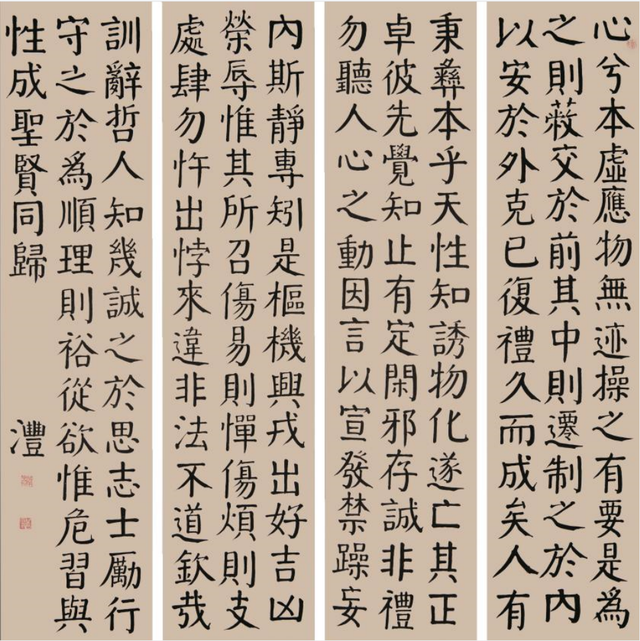 心兮本虛應物無迹操之有要是為
之則蔽交於前其中則遷制之於內
以安於外克已復禮久而成矣人有
秉彝本乎天性知誘物化遂亡其正
卓彼先覺知止有定閑邪存誠非禮
勿聽人心之動因言以宣發禁躁妄
內斯靜專矧是樞機興戎出好吉凶
榮辱惟其所召傷易則憚傷煩則支
處肆勿忤出悖來違非法不道欽哉
訓辭哲人知幾誠之於思志士勵行
守之於爲順理則裕從欲惟危習與
性成聖賢同歸
澧